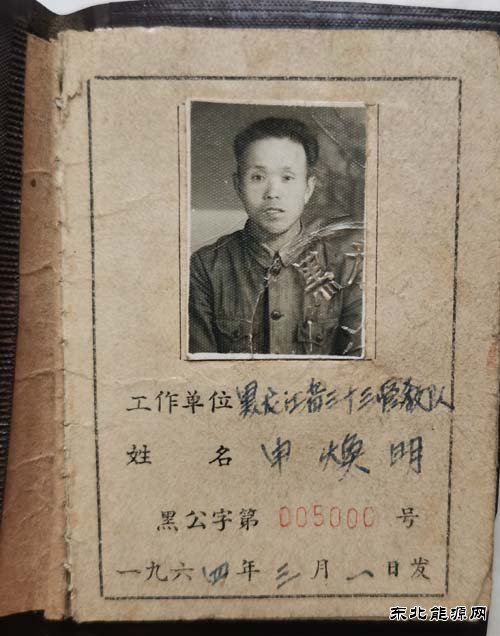 黑龙
工作单位 黑龙江省三十三管教队
姓 名 申焕明
黑公字第 005000 号
一九六四年三月一日发
东北能源网